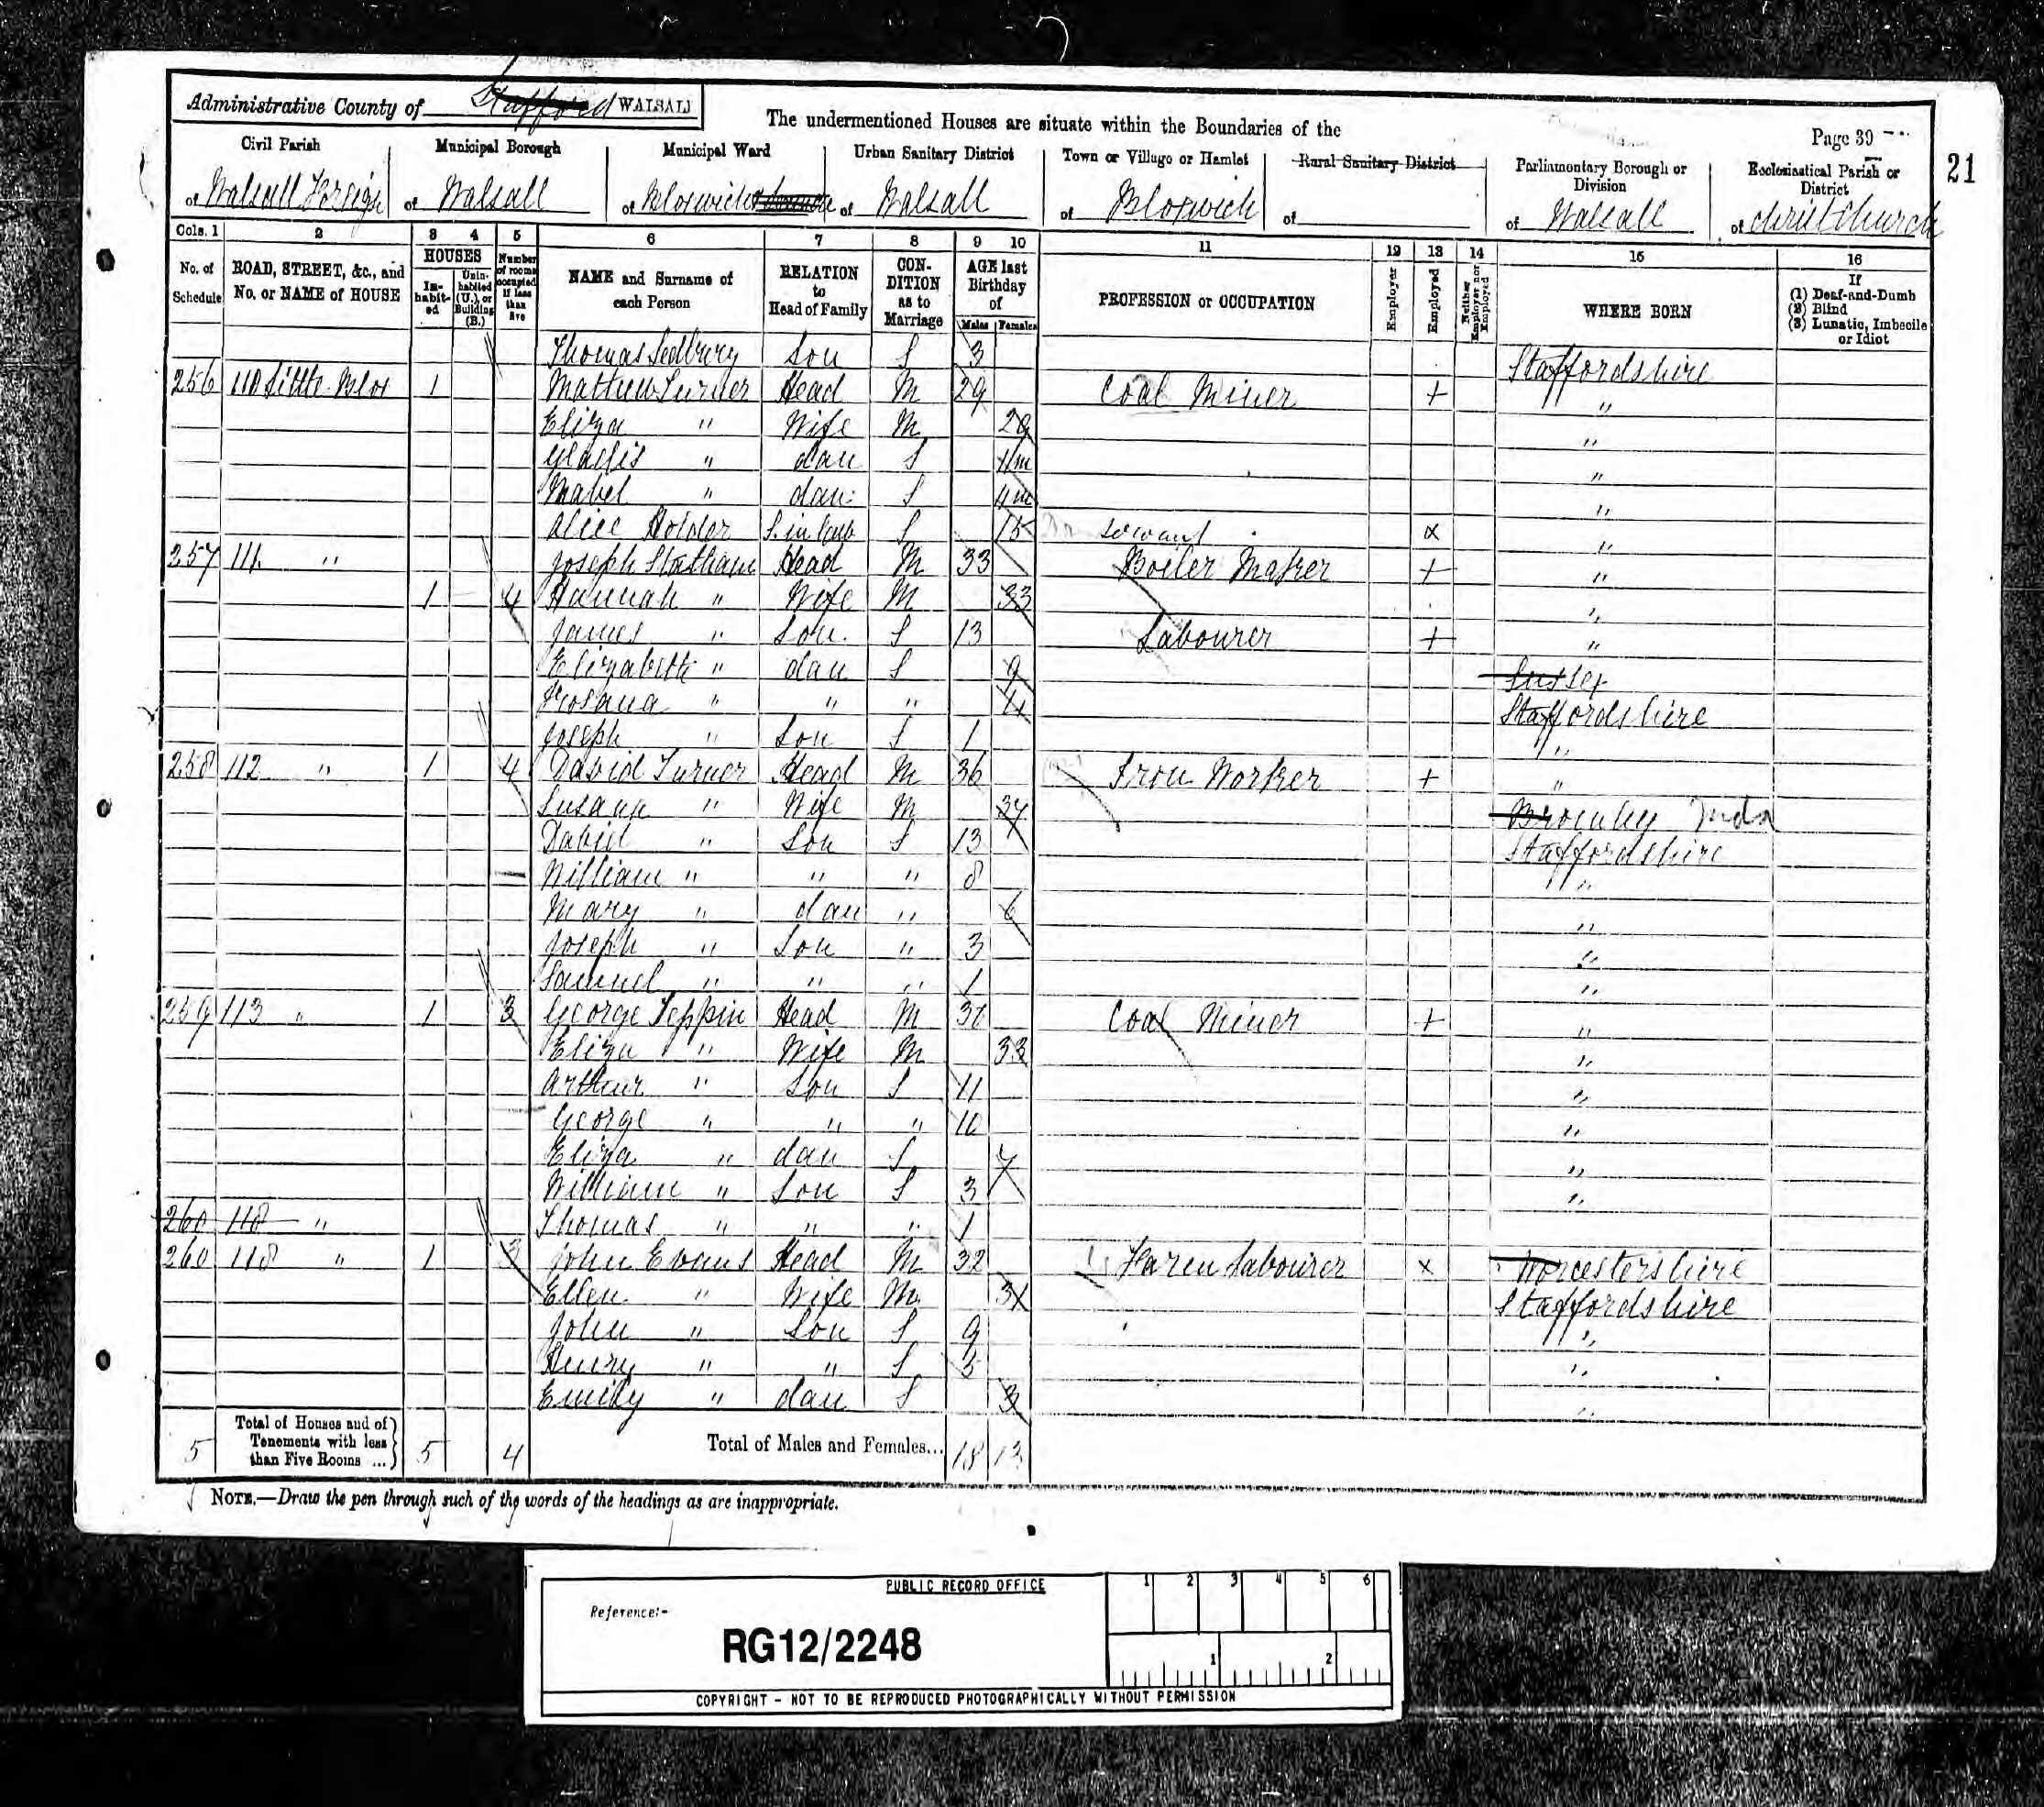 Administrative County of Stafford WALSALL
The undermentioned Houses are situate within the Boundaries of the
Page 39
21
Civil Parish
Municipal Borough
Municipal Ward
Urban Sanitary District
Town or Village or Hamlet
Rural Sanitary District
Parliamentary Borough or Division
Ecclesiastical Parish or District
of Walsall Foreign
of Walsall
of Bloxwich
of Walsall
of Bloxwich
of
of Walsall
of Christ Church
Cols. 1 2 3 4 5 6 7 8 9 10 11 12 13 14 15 16
No. of Schedule
ROAD, STREET, &c., and No. or NAME of HOUSE
HOUSES
Inhabited
Uninhabited (U.), or Building (B.)
Number of rooms occupied if less than five
NAME and Surname of each Person
RELATION to Head of Family
CONDITION as to Marriage
AGE last Birthday of
Males Females
PROFESSION or OCCUPATION
Employer
Employed
Neither Employer nor Employed
WHERE BORN
If
(1) Deaf-and-Dumb
(2) Blind
(3) Lunatic, Imbecile or Idiot
Thomas Sedbury Son S 3 Staffordshire
256 110 Little Blox 1 Mathew Turner Head M 29 Coal Miner + "
Eliza " Wife M 28 "
Gladis " dau S 11m "
Mabel " dau: S 11m "
Alice Holder S. in law S 15 servant x "
257 111 " Joseph Statham Head M 33 Boiler Maker + "
1 4 Hannah " Wife M 33 "
James " Son. S 13 Labourer + "
Elizabeth " dau S 9 Sussex
Rosana " " " 4 Staffordshire
Joseph " Son S 1 "
258 112 " 1 4 David Turner Head M 36 Iron Worker + "
Susana " Wife M 34 Bromley
David " Son S 13 Staffordshire
William " " " 8 "
Mary " dau " 6 "
Joseph " Son " 3 "
Samuel " " " 1 "
259 113 " 1 3 George Teppin Head M 37 Coal Miner + "
Eliza " Wife M 33 "
Arthur " Son S 11 "
George " " " 10 "
Eliza " dau S 7 "
William " Son S 3 "
260 118 " Thomas " " " 1
260 118 " 1 3 John Evans Head M 32 Farm Labourer x Worcestershire
Ellen " Wife M 31 Staffordshire
John " Son S 9 "
Henry " " S 5 "
Emily " dau S 3 "
5 Total of Houses and of Tenements with less than Five Rooms ... 5 4 Total of Males and Females... 18 13
NOTE.—Draw the pen through such of the words of the headings as are inappropriate.
PUBLIC RECORD OFFICE
1 2 3 4 5 6
Reference:-
RG12/2248
1 2
COPYRIGHT - NOT TO BE REPRODUCED PHOTOGRAPHICALLY WITHOUT PERMISSION